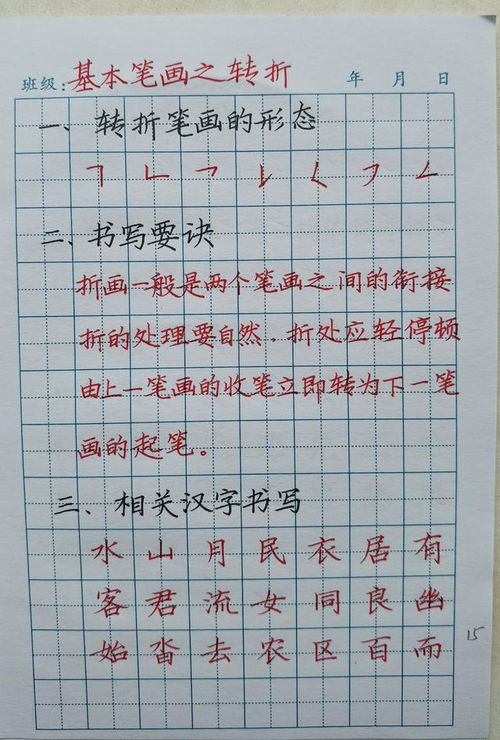 班级：基本笔画之转折 年 月 日
一、转折笔画的形态
𠃍 𠃊 乛 𠄌 𡿨 ㇇ ㇗
二、书写要诀
折画一般是两个笔画之间的衔接
折的处理要自然．折处应轻停顿
由上一笔画的收笔立即转为下一笔
画的起笔。
三、相关汉字书写
水 山 月 民 衣 居 有
客 君 流 女 同 良 幽
始 畓 去 农 区 百 而
15